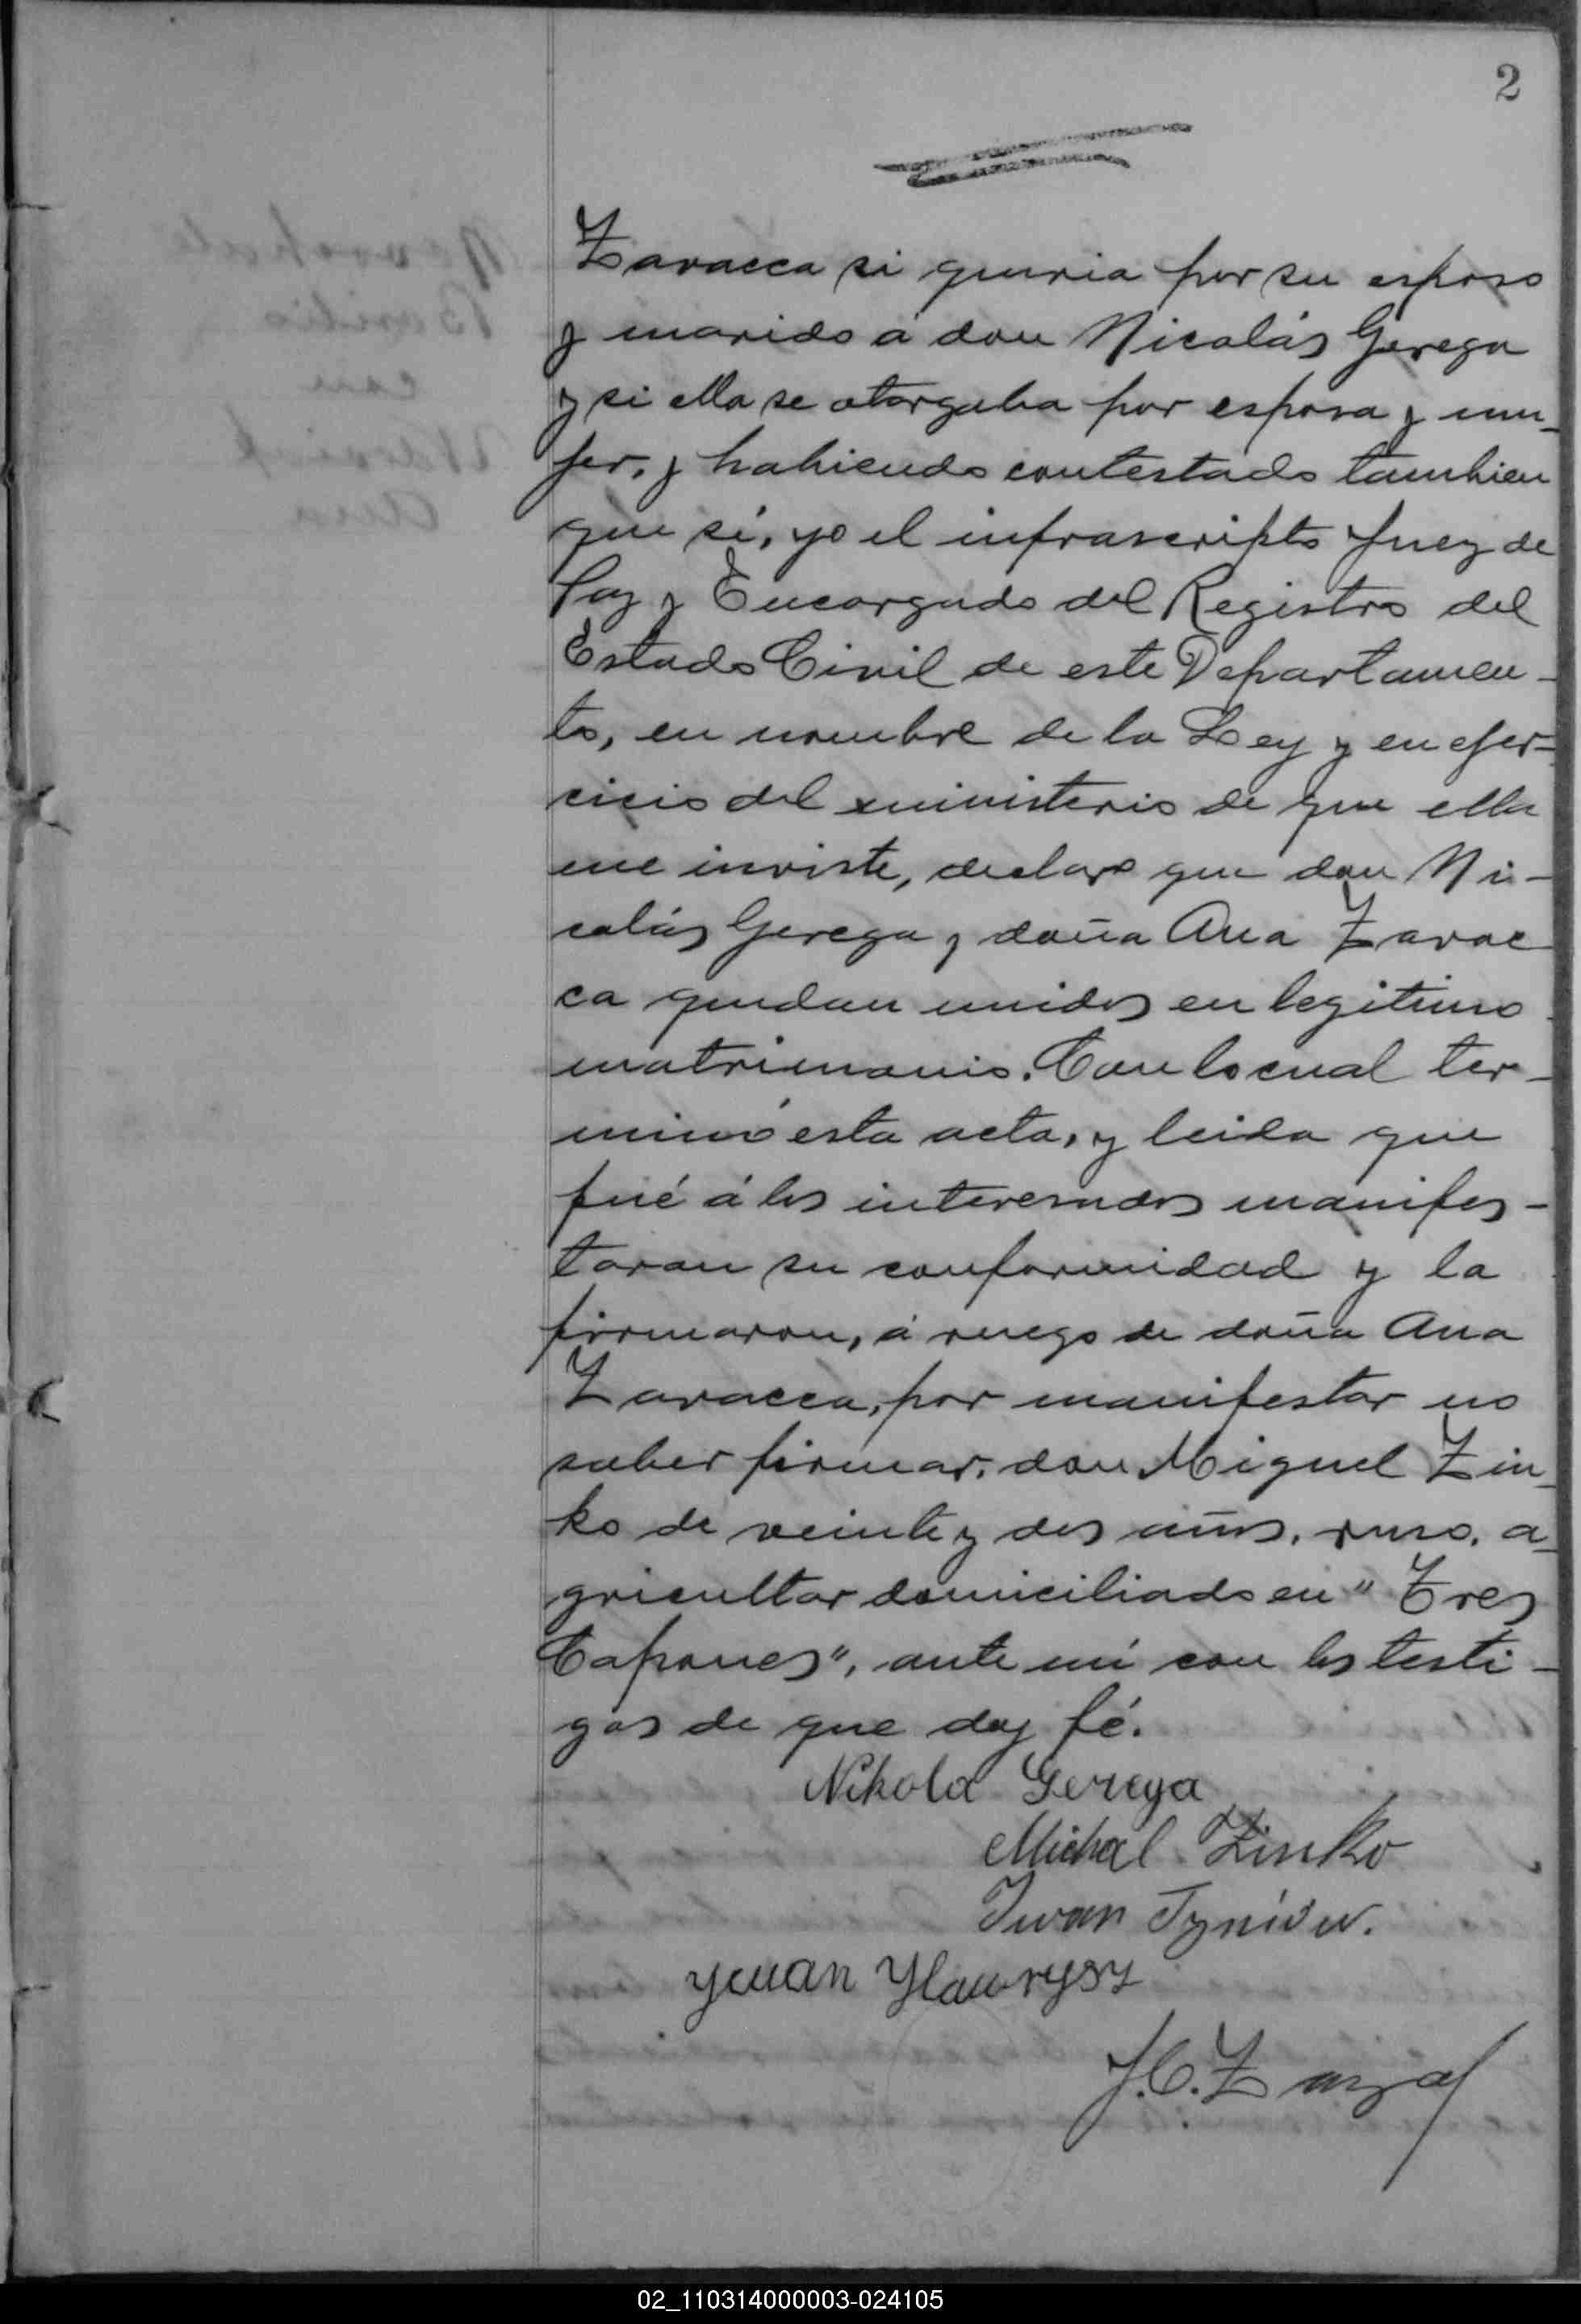 2
Zavacca si queria por su esposo
y marido á don Nicolás Gerega
y si ella se otorgaba por esposa y mu-
jer, y habiendo contestado tambien
que sí, yo el infrascripto Juez de
Paz y Encargado del Registro del
Estado Civil de este Departamen-
to, en nombre de la Ley y en ejer-
cicio del ministerio de que ella
me inviste, declaro que don Ni-
colás Gerega y doña Ana Zavac
ca quedan unidos en legitimo
matrimonio. Con lo cual ter-
minó esta acta, y leida que
fué á los interesados manifes-
taron su conformidad y la
firmaron, á ruego de doña Ana
Zavacca, por manifestar no
saber firmar, don Miguel Zin-
ko de veinte y dos años, ruso, a-
gricultor domiciliado en "Tres
Capones", ante mí con los testi-
gos de que doy fé.
Nikola Gerega
Michal Zinko
Iwan Tyniów.
Jwan Hawrysz
J.C.Z
02_110314000003-024105